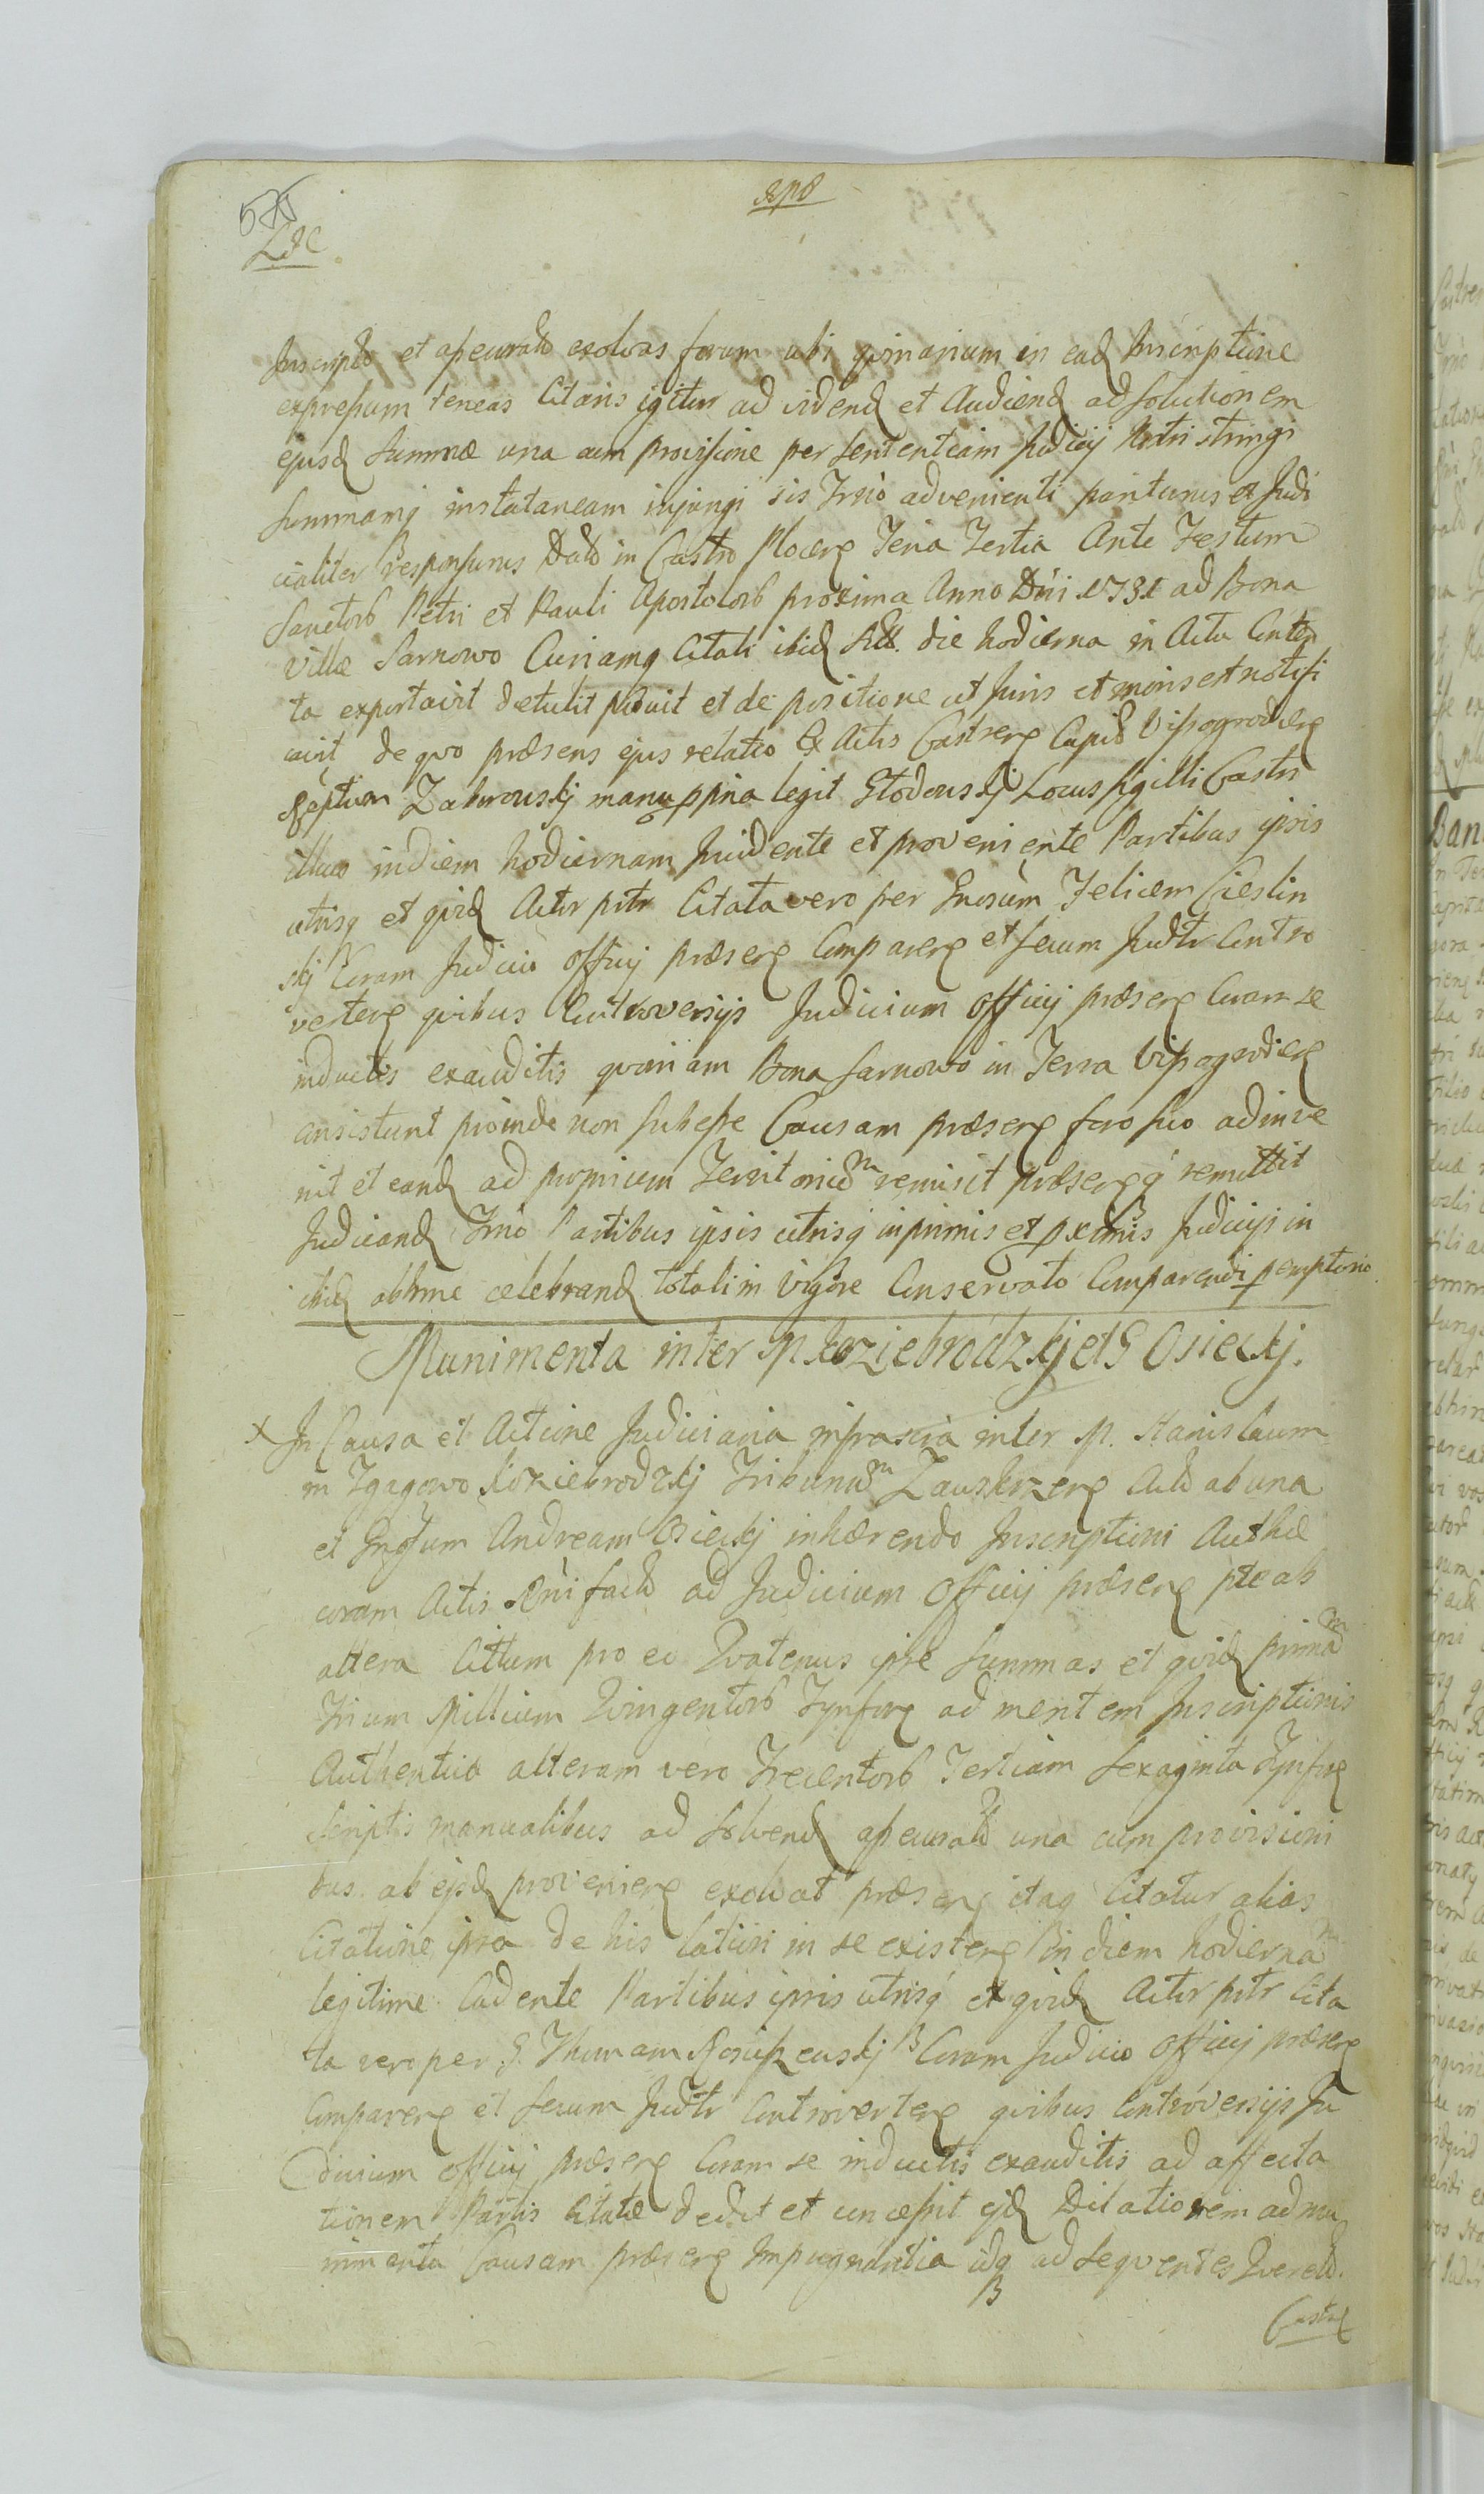 Inscripto et assecurato exolvas forum ubi qvinarium in ead Inscriptione
expressum teneas Citaris igitur ad vidend et Audiend ad solutionem
ejusd Summæ una cum provisione per sententiam Judicij stringi
Summamq instantaneam injungi sis Trnò advenienti pariturus et Judi
cialiter responsurus Datt in Castro Plocen Feria Tertia Ante Festum
Sanctorb Petri et Pauli Apostolorb proxima Anno Dni 1731 ad Bona
Villæ Sarnowo Curiamq Citati ibid die hodierna in Actu Conten
ta exportavit detulit posuit et de positione ut Juris et moris est notifi
cavit de qvo præsens ejus relatio Ex Actis Castren Capit Vissogrodien
Zabrouskj manu ppria legit Stodouskj Locus sigilli Castr
illius in diem hodiernam Incidente et proveniente Partibus ipsis
utrisq et qvid Actor pttr Citata vero per Gnosum Felicem Cieslin
skj Coram Judicio Officij præsen Comparen et secum Judtr Contro
verten qvibus Controversijs Judicium Officij præsen Coram se
inductis exauditis qvoniam Bona Sarnowo in Terra Vissogrodien
consistunt proinde non subesse Causam præsen foro suo adinve
nit et eand ad proprium Territoriu^m remisit præsenq remittit
Judicand Trnò Partibus ipsis utrisq in primis et pximis Judicijs in
ibid abhinc celebrand totali in Vigore Conservato Comparendi pemptorio
Munimenta inter M Koziebrodzkj et G Osieckj.
x In Causa et Actione Judiciaria infrascra inter M. Stanislaum
in Zgagowo Koziebrodzkj Tribunu^m Zauskrzen Actt ab una
et Gnosum Andream Osieckj inhærendo Inscriptioni Authæ
coram Actis facto ad Judicium Officij præsen pte ab
altera Cittum pro eo Qvatenus ipse Summas et qvid prima^m
Trium Millium Qvingentorb Tynforq ad mentem Inscriptionis
Authentica alteram vero Trecentorb Tertiam Sexaginta Tynforq
Scriptis manualibus ad solvend assecuratt una cum provisioni
bus ab ejsd provenien exolvat præsen itaq Citatur alias
Citatione ipsa de his latiori in se existen in diem hodierna^m
legitime Cadente Partibus ipsis utrisq et qvid Actor pttr Cita
ta vero per G. Thomam Rosciszeuskj Coram Judicio Officij præsen
Comparen et secum Judtr Controverten qvibus Controversijs Ju
dicium Officij præsen Coram se inductis exauditis ad affecta
tionem Partis Citatæ dedit et concessit ejd Dilationem ad mu
nimenta Causam præsen Impugnantia idq ad seqventes Qverell.
Castr